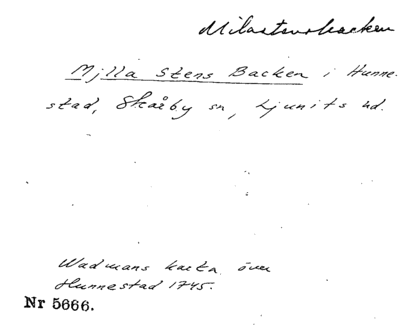 Milastensbacken
Mjlla Stens Backen i Hunne-
stad, Skårby sn, Ljunits hd.
Wadmans karta över
Hunnestad 1745.
Nr 5666.